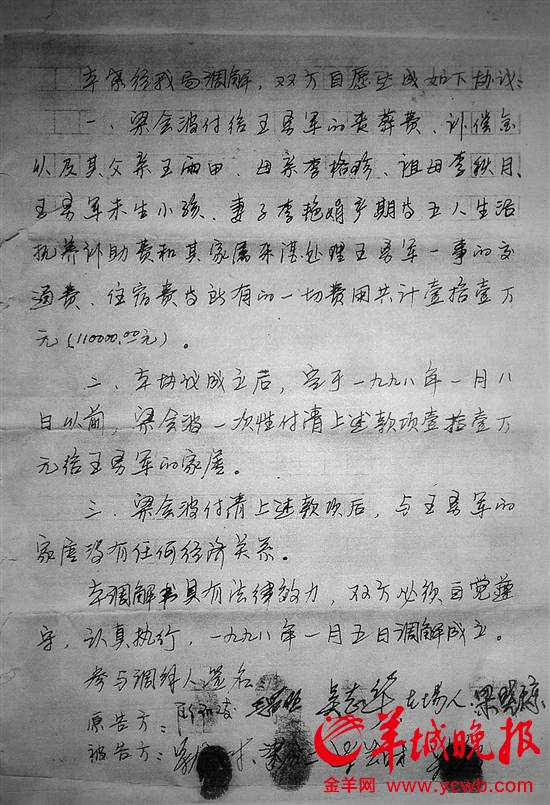 本案经我局调解，双方自愿达成如下协议：
一、梁会波付给王勇军的丧葬费、补偿金
以及其父亲王雨田、母亲李格珍、祖母李秋月、
王勇军未生小孩、妻子李艳娟产期等五人生活
抚养补助费和其家属来湛处理王勇军一事的交
通费、住宿费等所有的一切费用共计壹拾壹万
元（110000.00元）。
二、本协议成立后，定于一九九八年一月八
日以前，梁会波一次性付清上述款项壹拾壹万
元给王勇军的家属。
三、梁会波付清上述款项后，与王勇军的
家属没有任何经济关系。
本调解书具有法律效力，双方必须自觉遵
守，认真执行，一九九八年一月五日调解成立。
参与调解人签名
原告方： 在场人：
被告方：
羊城晚报
金羊网 www.ycwb.com